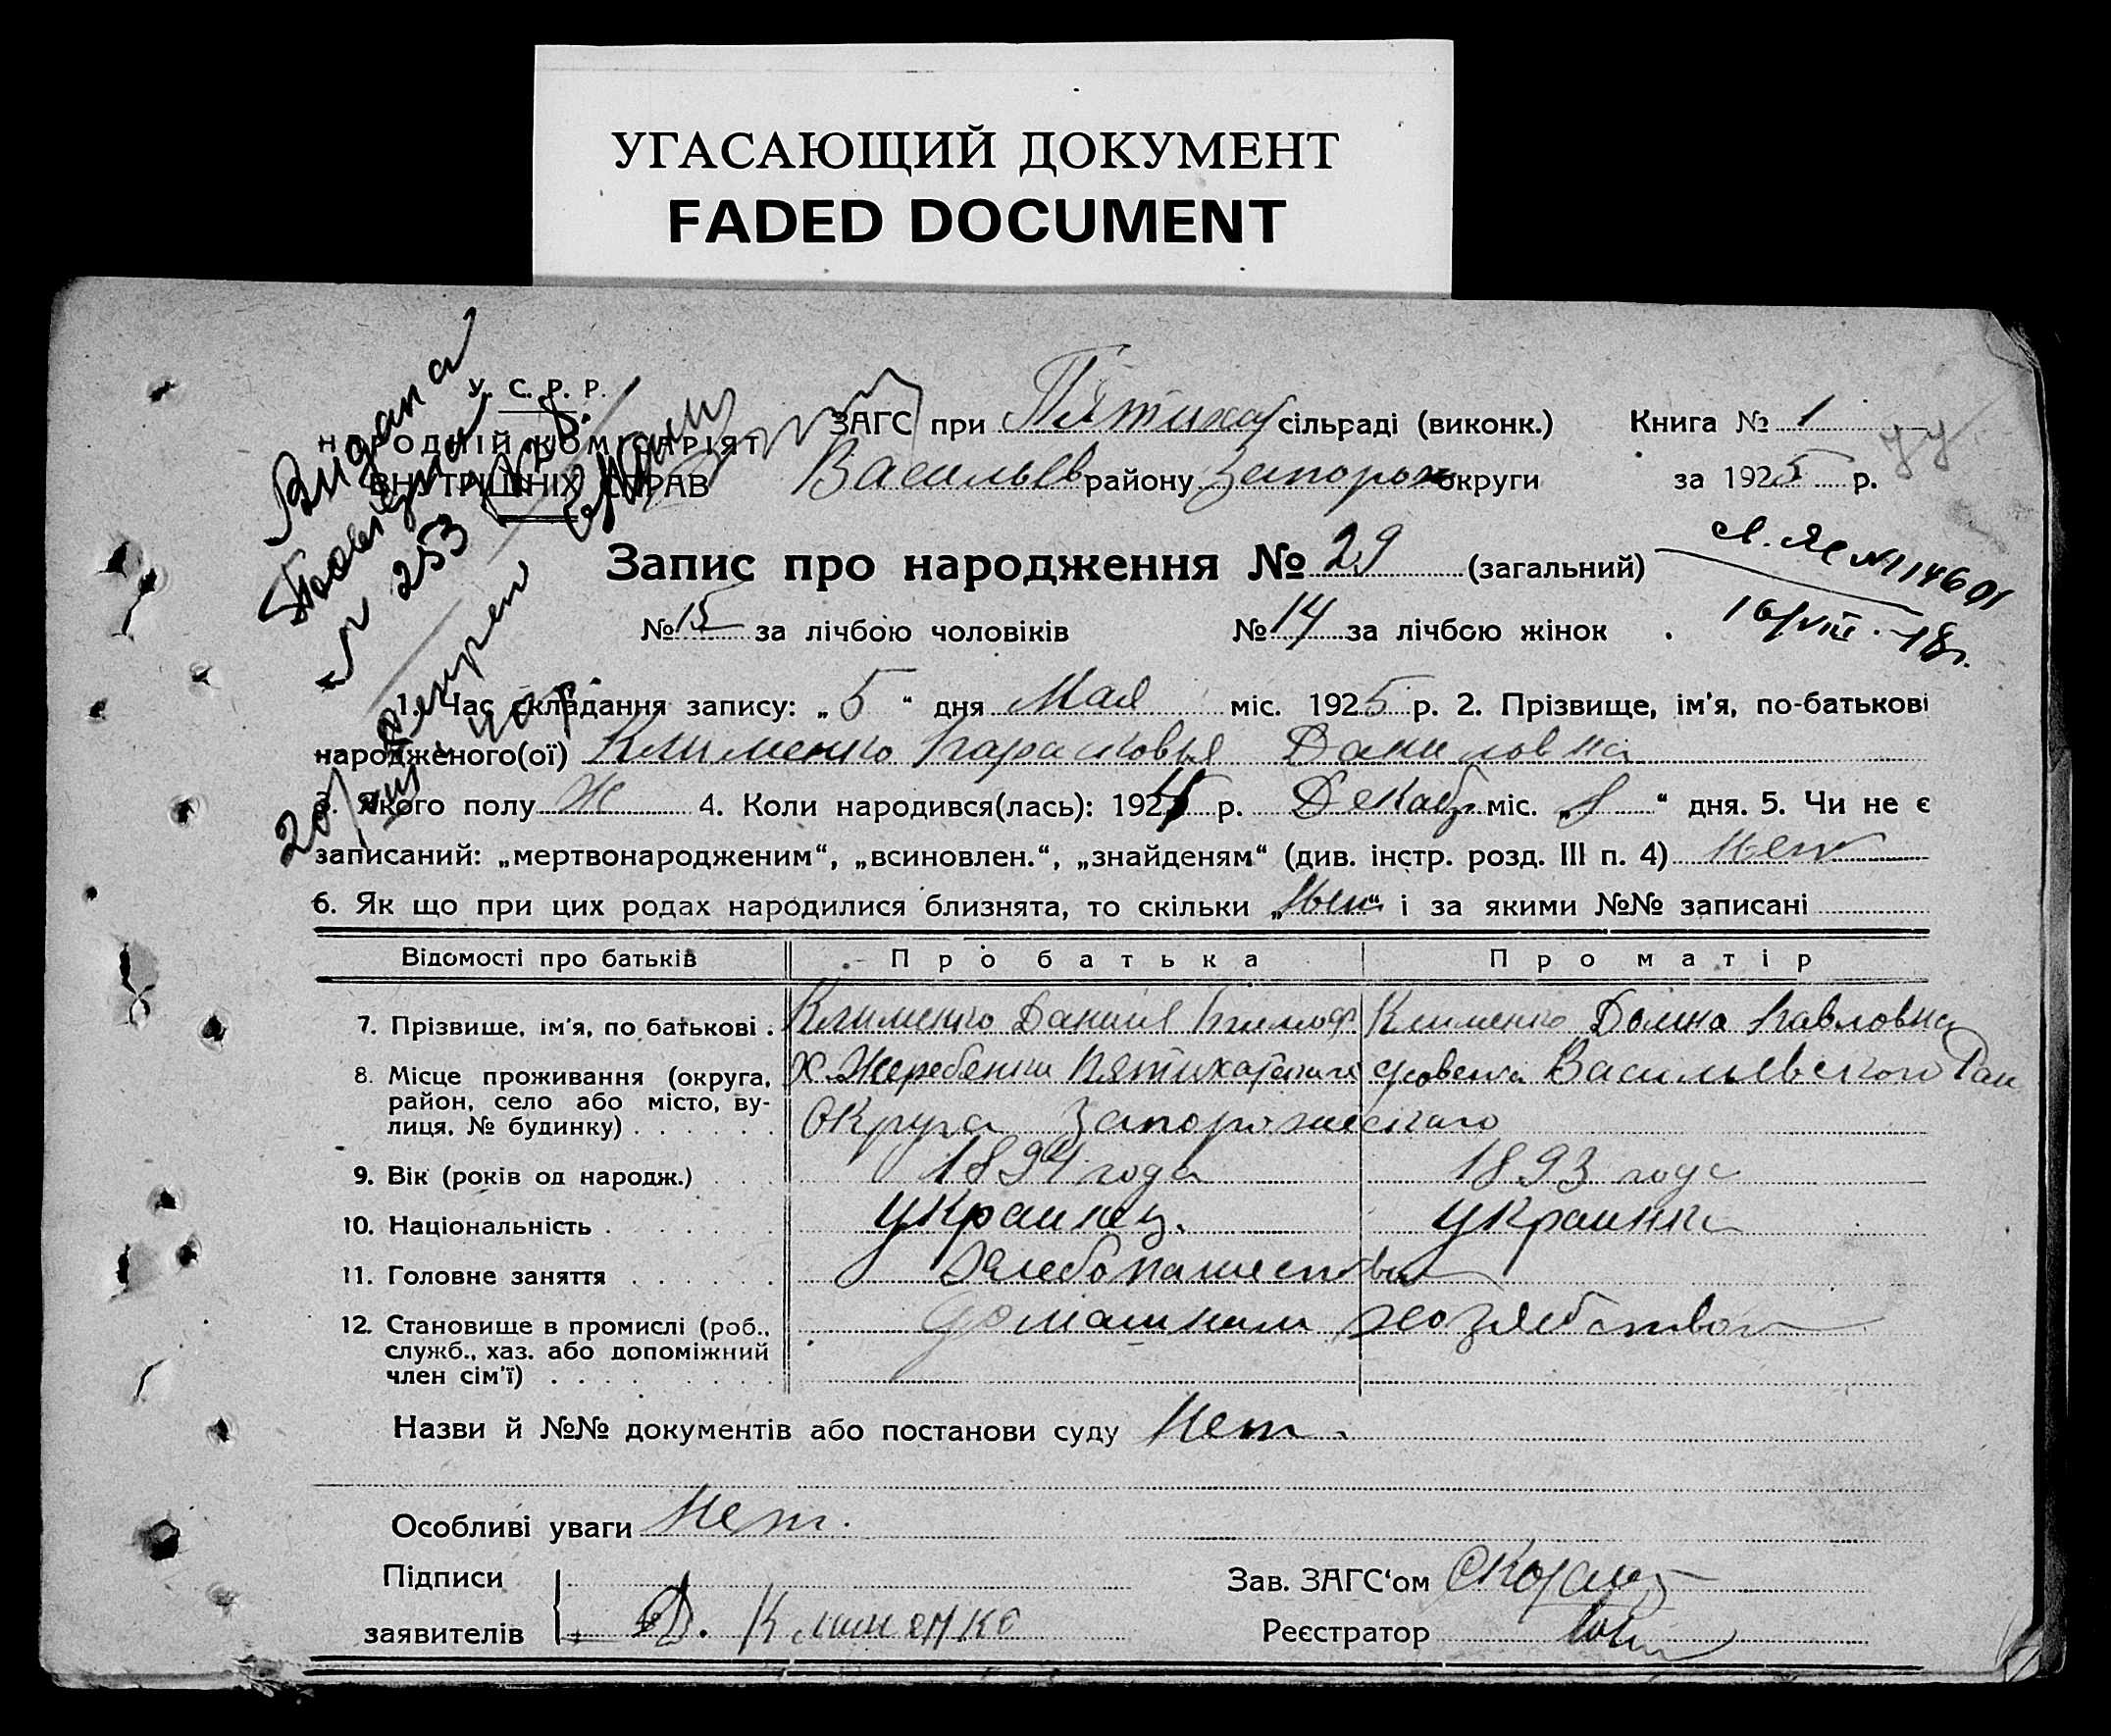 УГАСАЮЩИЙ ДОКУМЕНТ
FADED DOCUMENT
У. С. Р. Р.
НАРОДНІЙ КОМІСАРІЯТ
ВНУТРІШНІХ СПРАВ
Видана
№ 253
ЗАГС при Пятихат сільраді (виконк.) Книга № 1
Васильев району Запорож округи за 1925 р.
77
Запис про народження № 29 (загальний)
№ 15 за лічбою чоловіків № 14 за лічбою жінок
16/VIII
1. Час складання запису: „5“ дня Мая міс. 1925 р. 2. Прізвище, ім'я, по-батькові
народженого(ої) Клименко Парасковья Даниловна
3. Якого полу Ж 4. Коли народився(лась): 1924 р. Декабр міс. „8“ дня. 5. Чи не є
записаний: „мертвонародженим“, „всиновлен.“, „знайденям“ (див. інстр. розд. III п. 4) нет
6. Як що при цих родах народилися близнята, то скільки „нет“ і за якими №№ записані
Відомості про батьків Про батька Про матір
7. Прізвище, ім'я, по батькові . Клименко Даниил Клименко Домна Павловна
8. Місце проживання (округа, Х. Жеребянки Пятихатскаго Васильевского Рай
район, село або місто, ву- Округа Запорожскаго
лиця, № будинку) . . . . . .
9. Вік (років од народж.) . . . 1894 года 1893 года
10. Національність . . . . . украинец. украинка
11. Головне заняття . . . . . Хлебопашество
12. Становище в промислі (роб., домашним хозяйством
служб., хаз. або допоміжний
член сім'ї) . . . . . . . .
Назви й №№ документів або постанови суду Нет.
Особливі уваги Нет.
Підписи Зав. ЗАГС'ом
заявителів Д. Клименко Реєстратор